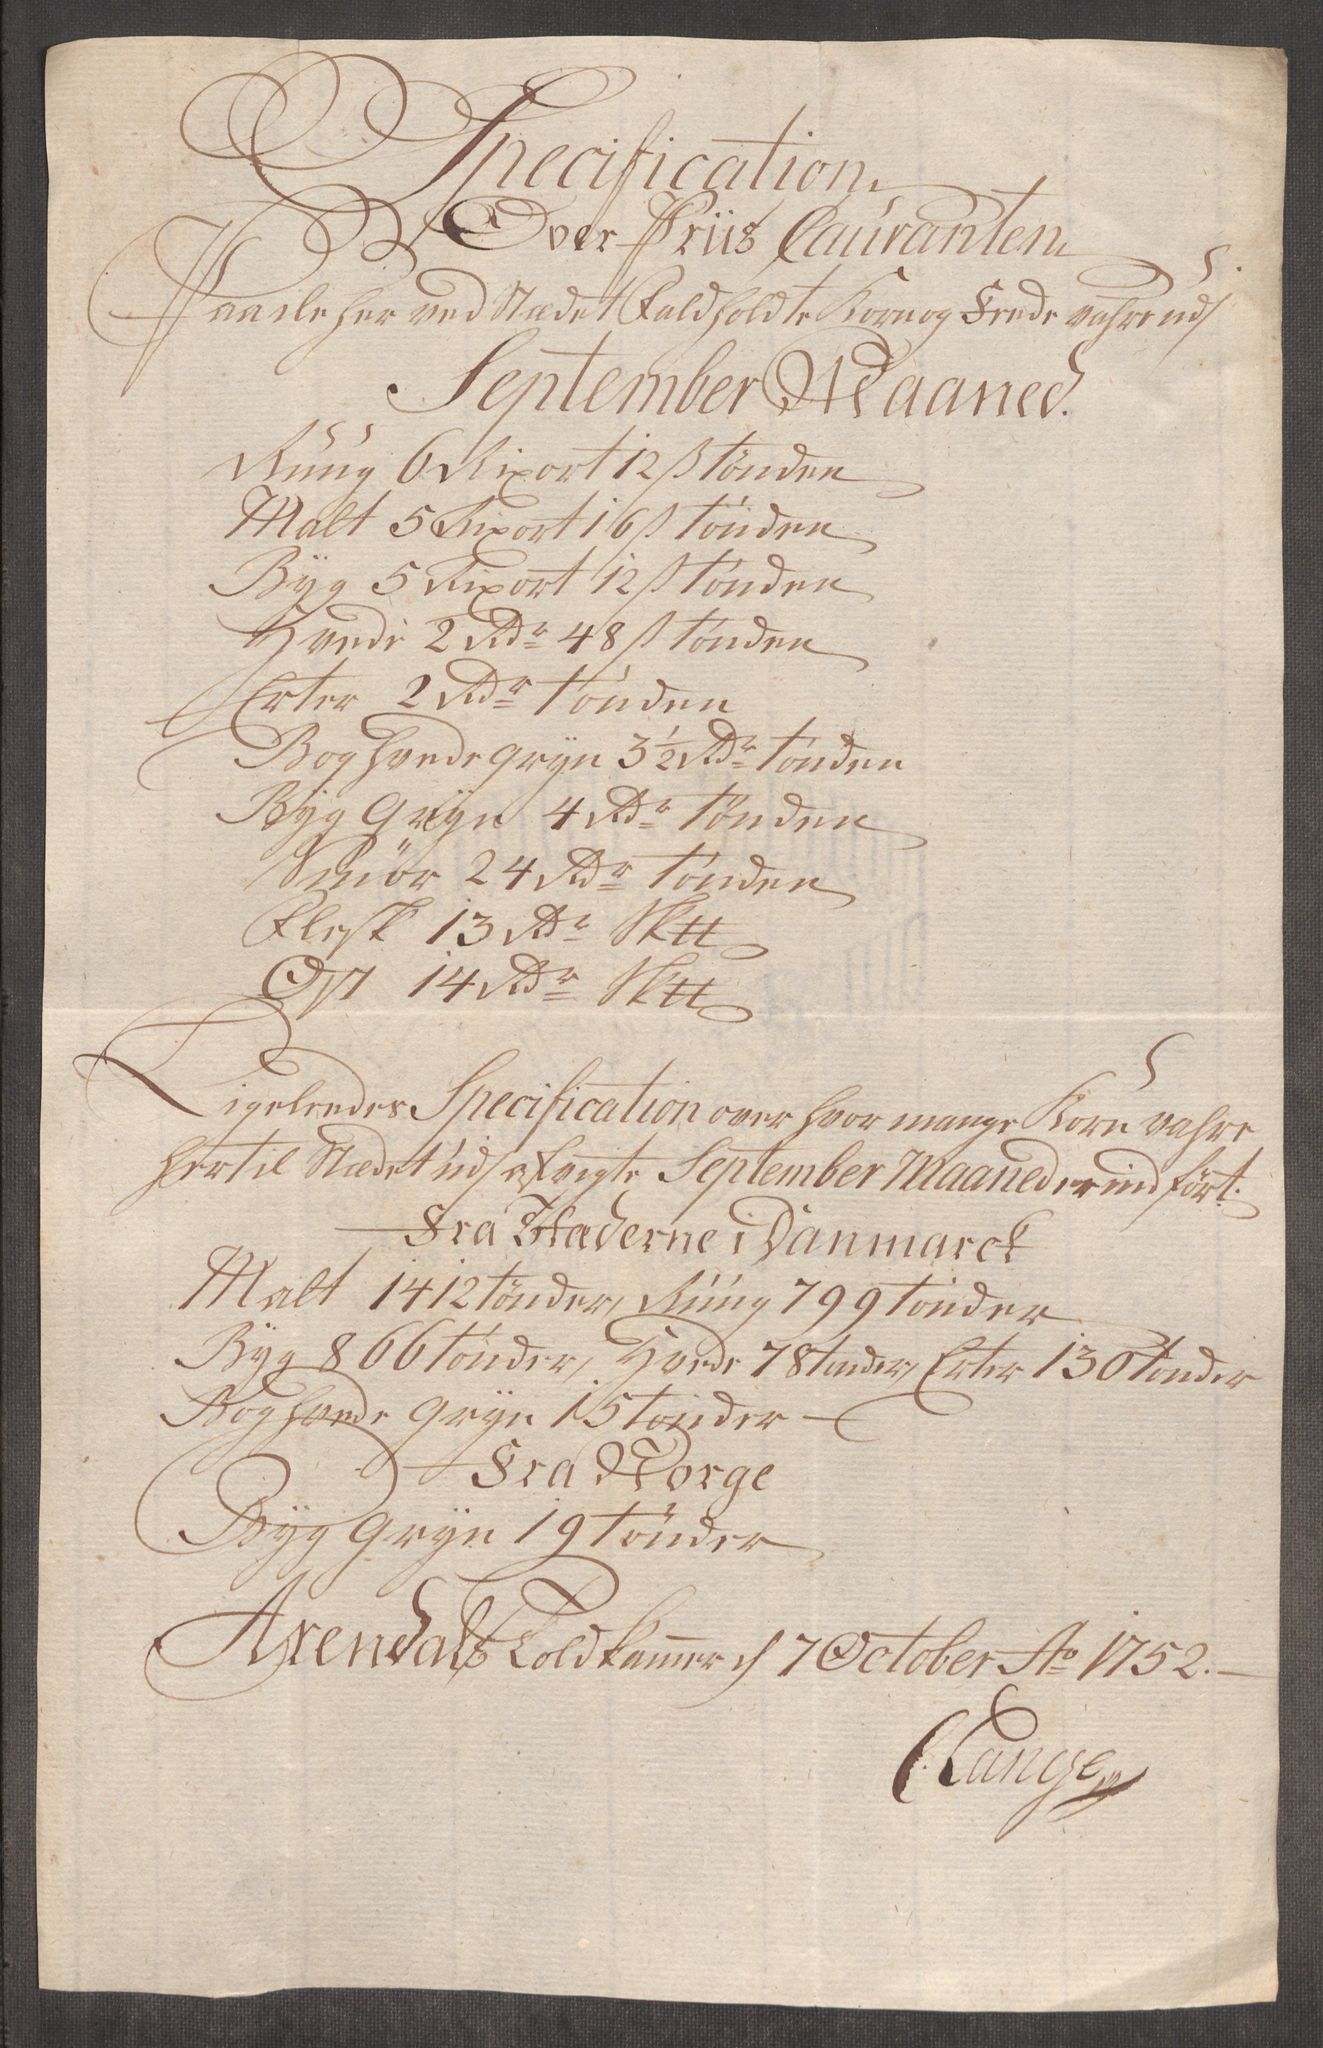 Specification
Over Priis Couranten
Paa de her ved Stædet Faldholdte Korn og Fede vahre udj
September Maaned.
Rúúg 6 Rixort 12 ß tønden
Malt 5 Rixort 16 ß tønden
Byg 5 Rixort 12 ß tønden
Hvede 2 Rdr 48 ß tønden
Erter 2 Rdr tønden
Boghvede gryn 3½ Rdr tønden
Byg Gryn 4 Rdr tønden
Smør 24 Rdr tønden
Flesk 13 Rdr Sk℔
Ost 14 Rdr Sk℔
Ligeleedes Specification over hvor mange Korn vahre
hertil Stædet udj afvigte September Maaned er indført.
Fra Stæderne i Danmarck
Malt 1412 tønder, Rúúg 799 tønder
Byg 866 tønder, Hvede 78 tønder, Erter 130 tønder
Boghvede Gryn 15 tønder
Fra Norge
Byg Gryn 19 tønder
Arendals Toldkammer d 7 October Ao 1752.
C Lange